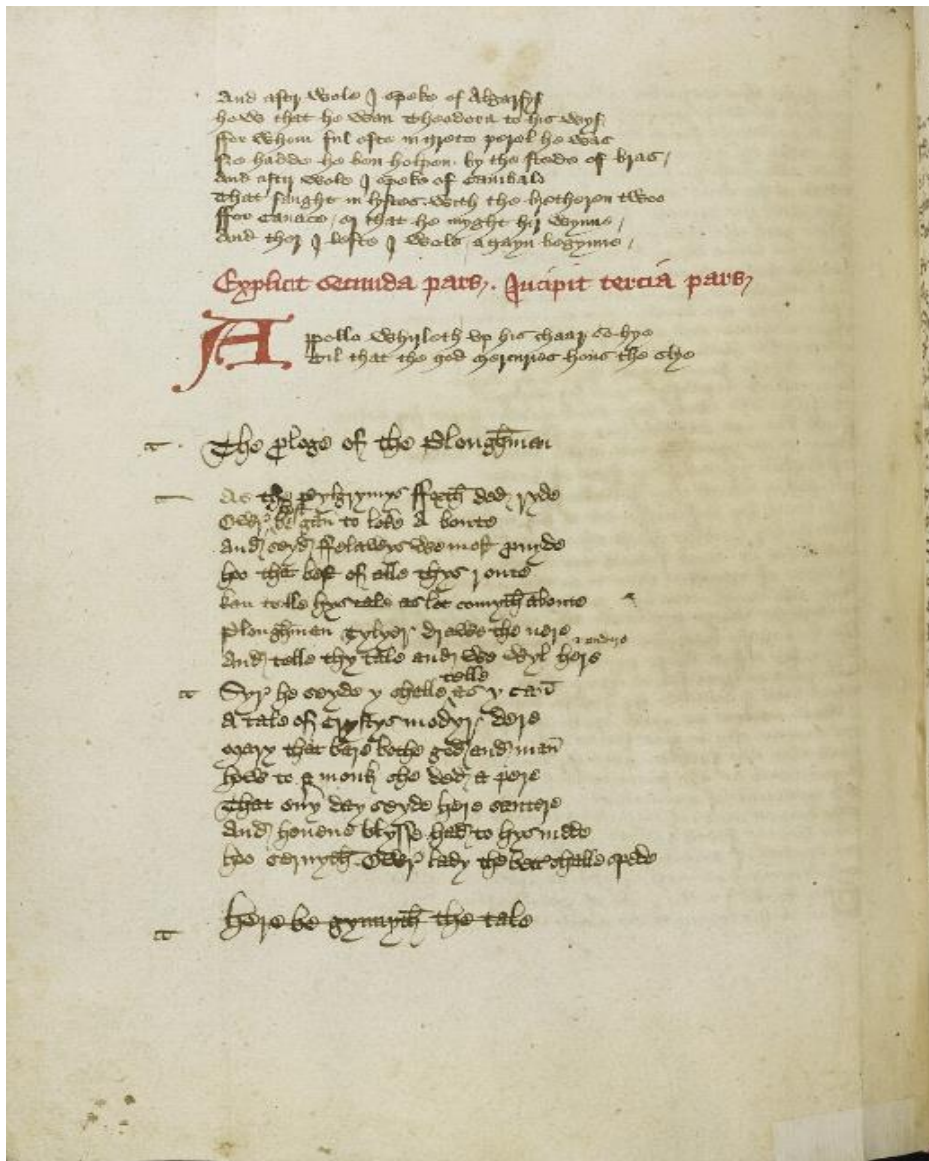 And aftir wole I speke of Algarsyf
how that he wan Theodora to his wyf
ffor whom ful ofte in grete perel he was
Ne hadde he ben holpen by the stede of bras /
And aftir wole I speke of Cambalo
That faught in lystes with the bretheren twoo
ffor Canace / er that he myght hir wynne /
And ther I lefte I wole agayn begynne /
Explicit secunda pars . Incipit tercia pars
Appollo whirleth vp his chaar so hye
Til that the god Mercurius hous the slye
The ploge of the Ploughman
As the pylgrymys fforth ded ryde
Owr be gan to loke A boute
And seyd ffelawys we most pruyde
hoo that best of alle thys route
kan telle hys tale as lot comyth Aboute
Ploughman tylyer drawe the nere
And telle thy tale and we wyl here
Syr he seyde y shalle telle as y can
A tale of Crystys modyr dere
Mary that bare bothe god and man
how to a monk she ded a pere
That euy day seyde here sautere
And heuene blysse had to hys mede
hoo seruyth Owr lady the bett shalle spede
here be gynnyth the tale